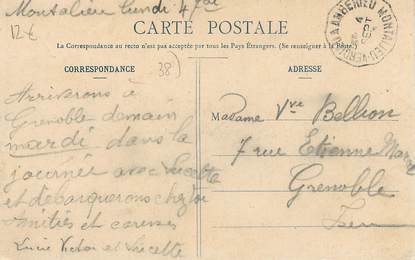 Montalieu Lundi 4
12€
CARTE POSTALE
La Correspondance au recto n'est pas acceptée par tous les Pays Étrangers. (Se renseigner à la Poste.)
CORRESPONDANCE
38)
ADRESSE
Arriverons à
Grenoble demain
mardi dans la
journée avec Lucette
et débarquerons chez toi
Amitiés et caresses
Lucie Victor et Lucette
Madame Vve Bellion
7 rue Etienne Mar
Grenoble
Isère